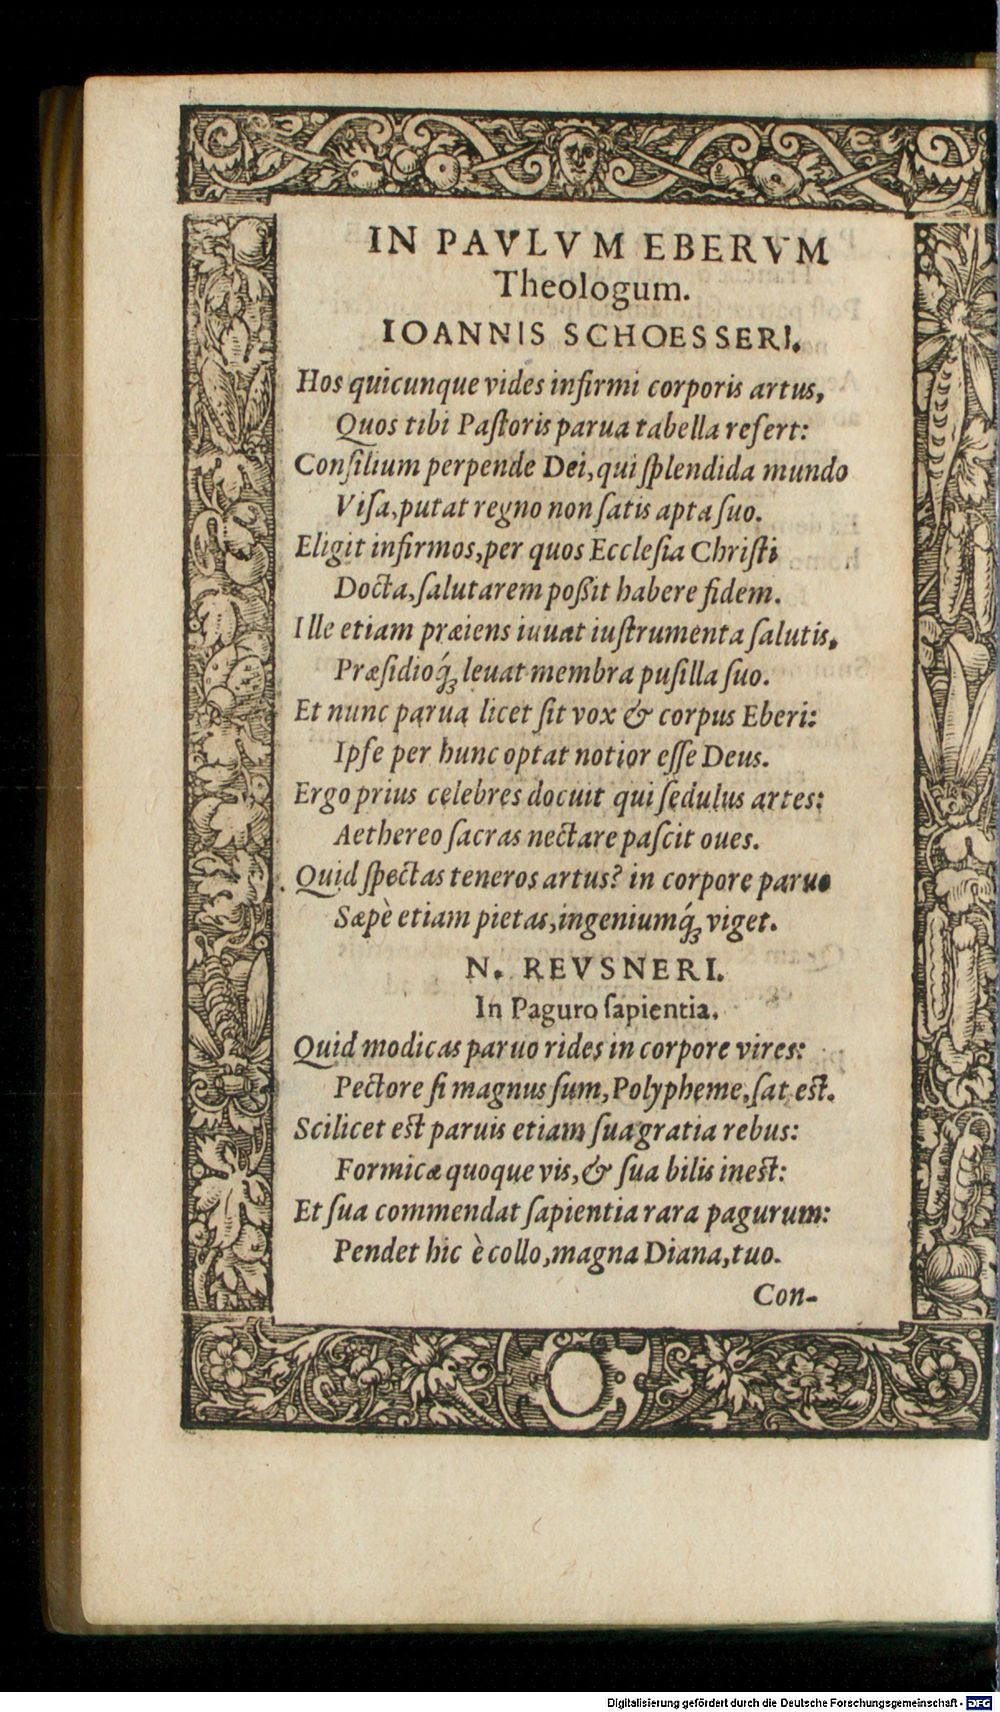 IN PAVLVM EBERVM
Theologum.
IOANNIS SCHOESSERI.
Hos quicunque vides infirmi corporis artus,
Quos tibi Paſtoris parua tabella refert:
Conſilium perpende Dei, qui ſplendida mundo
Viſa, putat regno non ſatis apta ſuo.
Eligit infirmos, per quos Eccleſia Chriſti
Docta, ſalutarem poßit habere fidem.
Ille etiam præiens iuuat iuſtrumenta ſalutis,
Præſidioq́ꝫ leuat membra puſilla ſuo.
Et nunc parua licet ſit vox & corpus Eberi:
Ipſe per hunc optat notior eſſe Deus.
Ergo prius celebres docuit qui ſedulus artes:
Aethereo ſacras nectare paſcit oues.
Quid ſpectas teneros artus? in corpore paruo
Sæpè etiam pietas, ingeniumq́ꝫ viget.
N. REVSNERI.
In Paguro ſapientia.
Quid modicas paruo rides in corpore vires:
Pectore ſi magnus ſum, Polypheme, ſat eſt.
Scilicet eſt paruis etiam ſua gratia rebus:
Formicæ quoque vis, & ſua bilis ineſt:
Et ſua commendat ſapientia rara pagurum:
Pendet hic è collo, magna Diana, tuo.
Con-
Digitalisierung gefördert durch die Deutsche Forschungsgemeinschaft - DFG